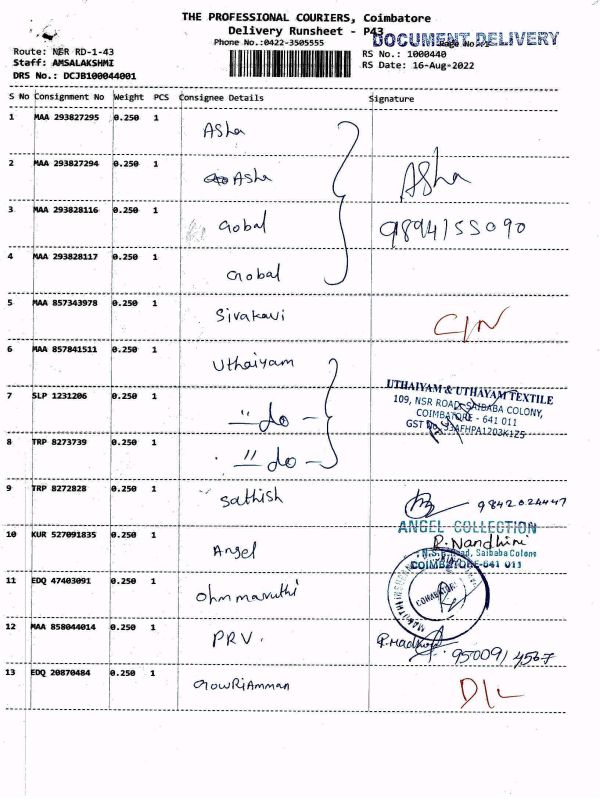 THE PROFESSIONAL COURIERS, Coimbatore
Delivery Runsheet - P43
DOCUMENT DELIVERY
Phone No.:0422-3505555
Page No.:1
Route: NSR RD-1-43
RS No.: 1000440
Staff: AMSALAKSHMI
RS Date: 16-Aug-2022
DRS No.: DCJB100044001
S No Consignment No Weight PCS Consignee Details Signature
1 MAA 293827295 0.250 1 Asha
2 MAA 293827294 0.250 1 Asha Asha
3 MAA 293828116 0.250 1 Gobal 9894155090
4 MAA 293828117 0.250 1 Gobal
5 MAA 857343978 0.250 1 Sivakavi C/N
6 MAA 857841511 0.250 1 Uthaiyam
UTHAIYAM & UTHAYAM TEXTILE
7 SLP 1231206 0.250 1 " do
109, NSR ROAD, SAIBABA COLONY,
COIMBATORE - 641 011
GST No. 33AFHPA1203K1Z5
8 TRP 8273739 0.250 1 " do
9 TRP 8272828 0.250 1 Sathish 9842024447
ANGEL COLLECTION
10 KUR 527091835 0.250 1 Angel R. Nandhini
N.S.R. Road, Saibaba Colony
COIMBATORE-641 011
11 EDQ 47403091 0.250 1 Ohm maruthi
COIMBATORE
12 MAA 858044014 0.250 1 PRV.
9500914567
13 EDQ 20870484 0.250 1 GowRiAmman D/L